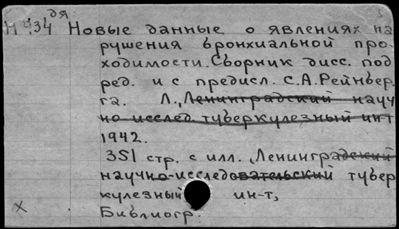 дя
Н 34 Новые данные о явлениях на
рушения бронхиальной про-
ходимости. Сборник дисс. под
ред. и с предисл. С.А. Рейнбер.
га. Л., Ленинградский науч
но исслед. туберкулезный ин-т
1942.
351 стр. с илл. Ленинградский
научно-исследовательский тубер
кулезный ин-т,
Библиогр.